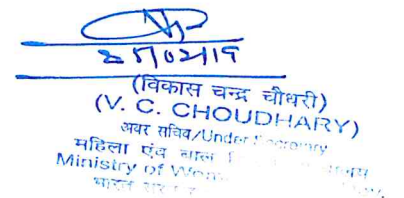 25/02/19
(विकास चन्द्र चौधरी)
(V. C. CHOUDHARY)
अवर सचिव/Under Secretary
महिला एंव बाल
Ministry of
भारत